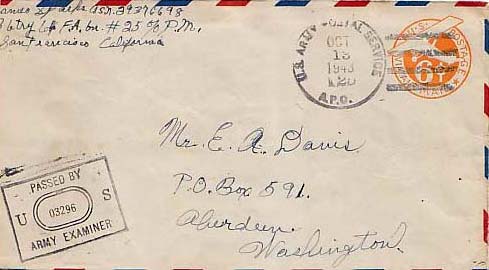 ASN. 39396698
Btry F.A. bn. # 25 % P.M.
San Francisco California
U.S. ARMY POSTAL SERVICE
OCT
13
1943
A.P.O.
U.S. POSTAGE
VIA AIR MAIL
6¢
Mr. E. A. Davis
P.O. Box 591.
Aberdeen.
Washington.
PASSED BY
U 03296 S
ARMY EXAMINER